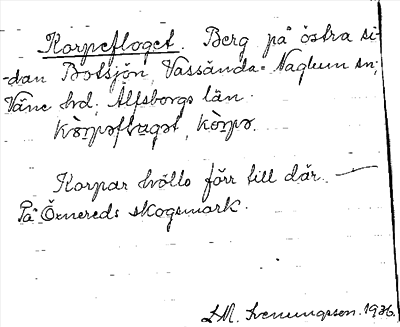 Korpefloget. Berg på östra si-
dan Botsjön, Vassända-Naglum sn,
Väne hd, Älfsborgs län.
kòrpəfləgət, kòrpə.
Korpar höllo förr till där. —
På Örnereds skogsmark.
1936.